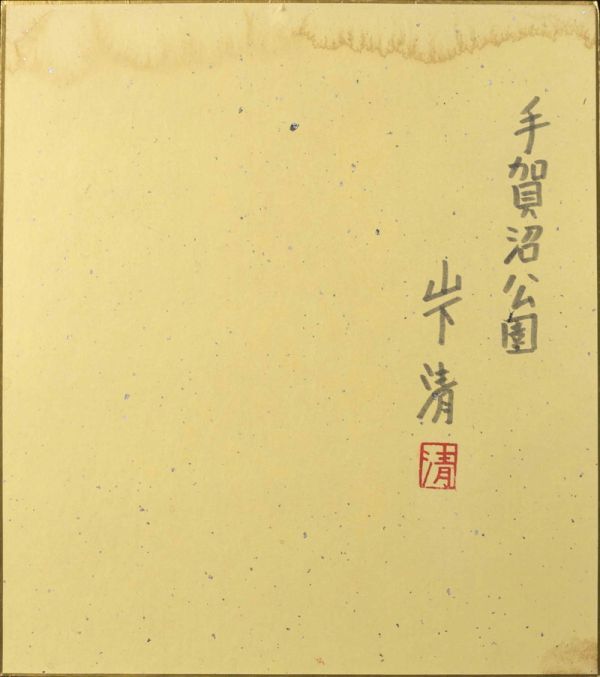 手賀沼公園
山下清
清